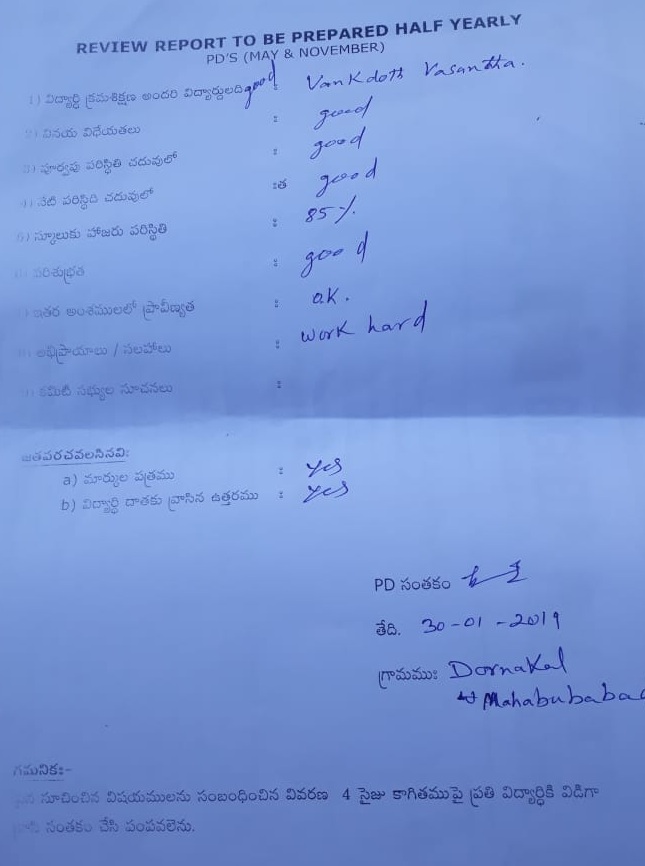 REVIEW REPORT TO BE PREPARED HALF YEARLY
PD'S (MAY & NOVEMBER)
1) విద్యార్థి క్రమశిక్షణ అందరి విద్యార్థులది good : Vankdoth Vasantha.
2) వినయ విధేయతలు : good
3) పూర్వపు పరిస్థితి చదువులో : good
4) నేటి పరిస్థితి చదువులో :త good
5) స్కూలుకు హాజరు పరిస్థితి : 85%.
పరిశుభ్రత : good
ఇతర అంశములలో ప్రావీణ్యత : ok.
అభిప్రాయాలు / సలహాలు : work hard
కమిటి సభ్యుల సూచనలు :
జతపరచవలసినవి:
a) మార్కుల పత్రము : yes
b) విద్యార్థి దాతకు వ్రాసిన ఉత్తరము : yes
PD సంతకం
తేది. 30-01-2019
గ్రామము: Dornakal
Mahabubabad
గమనిక:-
సూచించిన విషయములను సంబంధించిన వివరణ 4 సైజు కాగితముపై ప్రతి విద్యార్థికి విడిగా
సంతకం చేసి పంపవలెను.